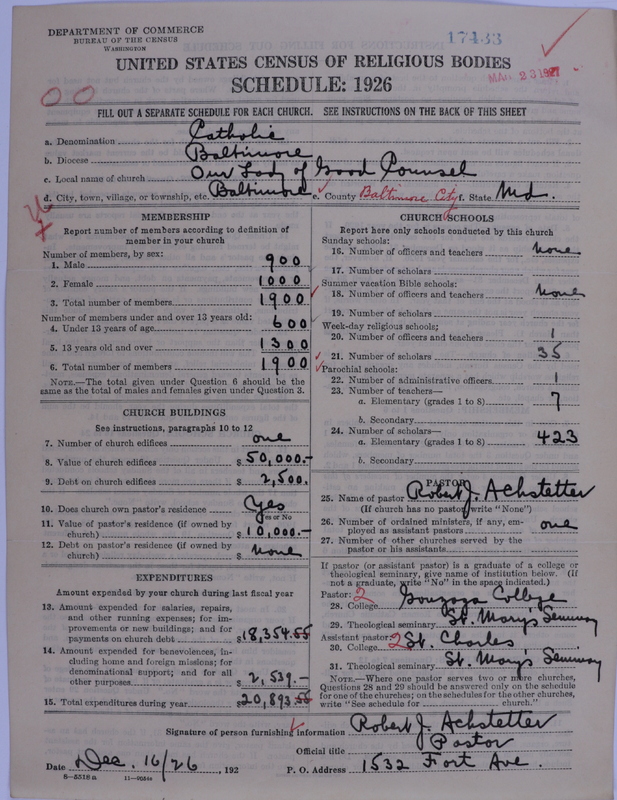 DEPARTMENT OF COMMERCE
BUREAU OF THE CENSUS
WASHINGTON
17433
MAR 23 1927
UNITED STATES CENSUS OF RELIGIOUS BODIES
SCHEDULE: 1926
FILL OUT A SEPARATE SCHEDULE FOR EACH CHURCH. SEE INSTRUCTIONS ON THE BACK OF THIS SHEET
a. Denomination Catholic
b. Diocese Baltimore
c. Local name of church Our Lady of Good Counsel
d. City, town, village, or township, etc. Baltimore e. County Baltimore City f. State Md.
MEMBERSHIP
Report number of members according to definition of
member in your church
Number of members, by sex:
1. Male 900
2. Female 1000
3. Total number of members 1900
Number of members under and over 13 years old:
4. Under 13 years of age 600
5. 13 years old and over 1300
6. Total number of members 1900
NOTE.—The total given under Question 6 should be the
same as the total of males and females given under Question 3.
CHURCH BUILDINGS
See instructions, paragraphs 10 to 12
7. Number of church edifices one
8. Value of church edifices $ 50,000.-
9. Debt on church edifices $ 2,500.
10. Does church own pastor's residence Yes
Yes or No
11. Value of pastor's residence (if owned by
church) $ 10,000.-
12. Debt on pastor's residence (if owned by
church) $ None
EXPENDITURES
Amount expended by your church during last fiscal year
13. Amount expended for salaries, repairs,
and other running expenses; for im-
provements or new buildings; and for
payments on church debt $ 18,354.55
14. Amount expended for benevolences, in-
cluding home and foreign missions; for
denominational support; and for all
other purposes $ 2,539.-
15. Total expenditures during year $ 20,893.55
CHURCH SCHOOLS
Report here only schools conducted by this church
Sunday schools:
16. Number of officers and teachers None
17. Number of scholars
Summer vacation Bible schools:
18. Number of officers and teachers None
19. Number of scholars
Week-day religious schools;
20. Number of officers and teachers 1
21. Number of scholars 35
Parochial schools:
22. Number of administrative officers 1
23. Number of teachers—
a. Elementary (grades 1 to 8) 7
b. Secondary
24. Number of scholars—
a. Elementary (grades 1 to 8) 423
b. Secondary
PASTOR
25. Name of pastor Robert J. Achstetter
(If church has no pastor, write "None")
26. Number of ordained ministers, if any, em-
ployed as assistant pastors one
27. Number of other churches served by the
pastor or his assistants
If pastor (or assistant pastor) is a graduate of a college or
theological seminary, give name of institution below. (If
not a graduate, write "No" in the space indicated.)
Pastor: 2
28. College Gonzaga College
29. Theological seminary St. Mary's Seminary
Assistant pastor: 2
30. College St. Charles
31. Theological seminary St. Mary's Seminary
NOTE.—Where one pastor serves two or more churches,
Questions 28 and 29 should be answered only on the schedule
for one of the churches; on the schedules for the other churches,
write "See schedule for church."
Signature of person furnishing information Robert J. Achstetter
Official title Pastor
Date Dec. 16/26, 192 P. O. Address 1532 Fort Ave.